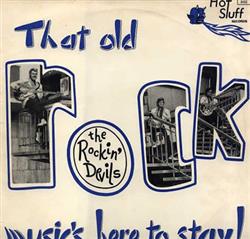 Hot
Stuff
RECORDS
That old
rock
the
Rockin'
Devils
music's here to stay!